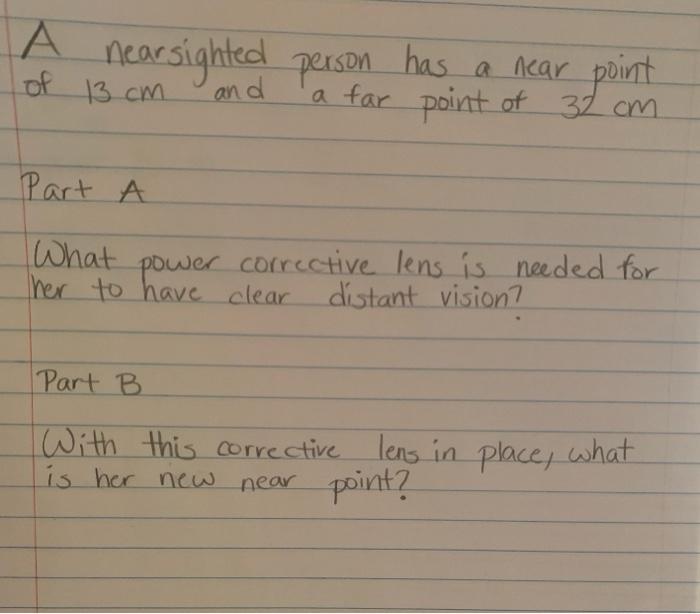 A nearsighted person has a near point
of 13 cm and a far point of 32 cm
Part A
What power corrective lens is needed for
her to have clear distant vision?
Part B
With this corrective lens in place, what
is her new near point?